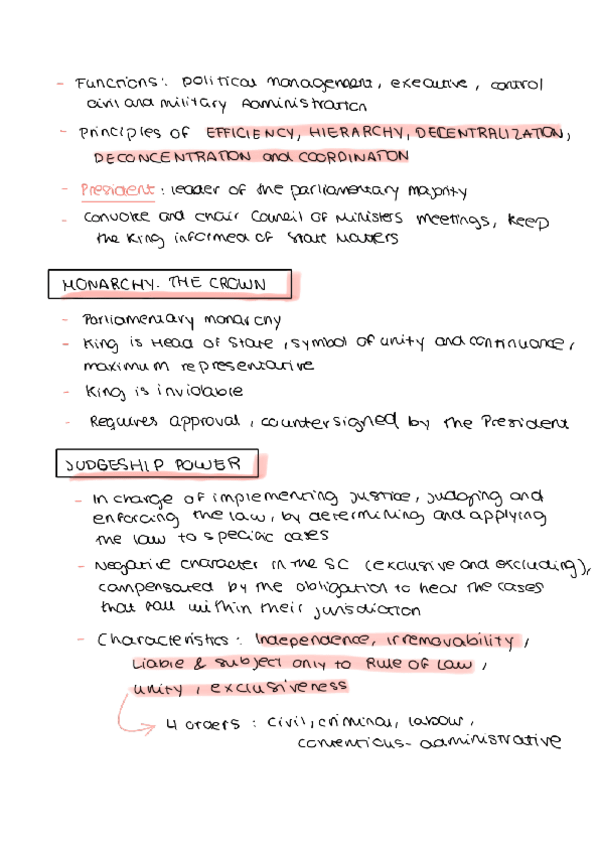 - Functions: political management, executive, control
civil and military Administration
- Principles of EFFICIENCY, HIERARCHY, DECENTRALIZATION,
DECONCENTRATION and COORDINATION
- President: leader of the parliamentary majority
- Convoke and chair Council of Ministers meetings, keep
the King informed of State Matters
MONARCHY. THE CROWN
- Parliamentary monarchy
- King is Head of State, symbol of unity and continuance,
maximum representative
- King is inviolable
- Requires approval, countersigned by the President
JUDGESHIP POWER
- In charge of implementing justice, judging and
enforcing the law, by determining and applying
the law to specific cases
- Negative character in the SC (exclusive and excluding),
compensated by the obligation to hear the cases
that fall within their jurisdiction
- Characteristics: Independence, irremovability,
Liable & subject only to Rule of Law,
unity, exclusiveness
4 orders: civil, criminal, labour,
contentious-administrative